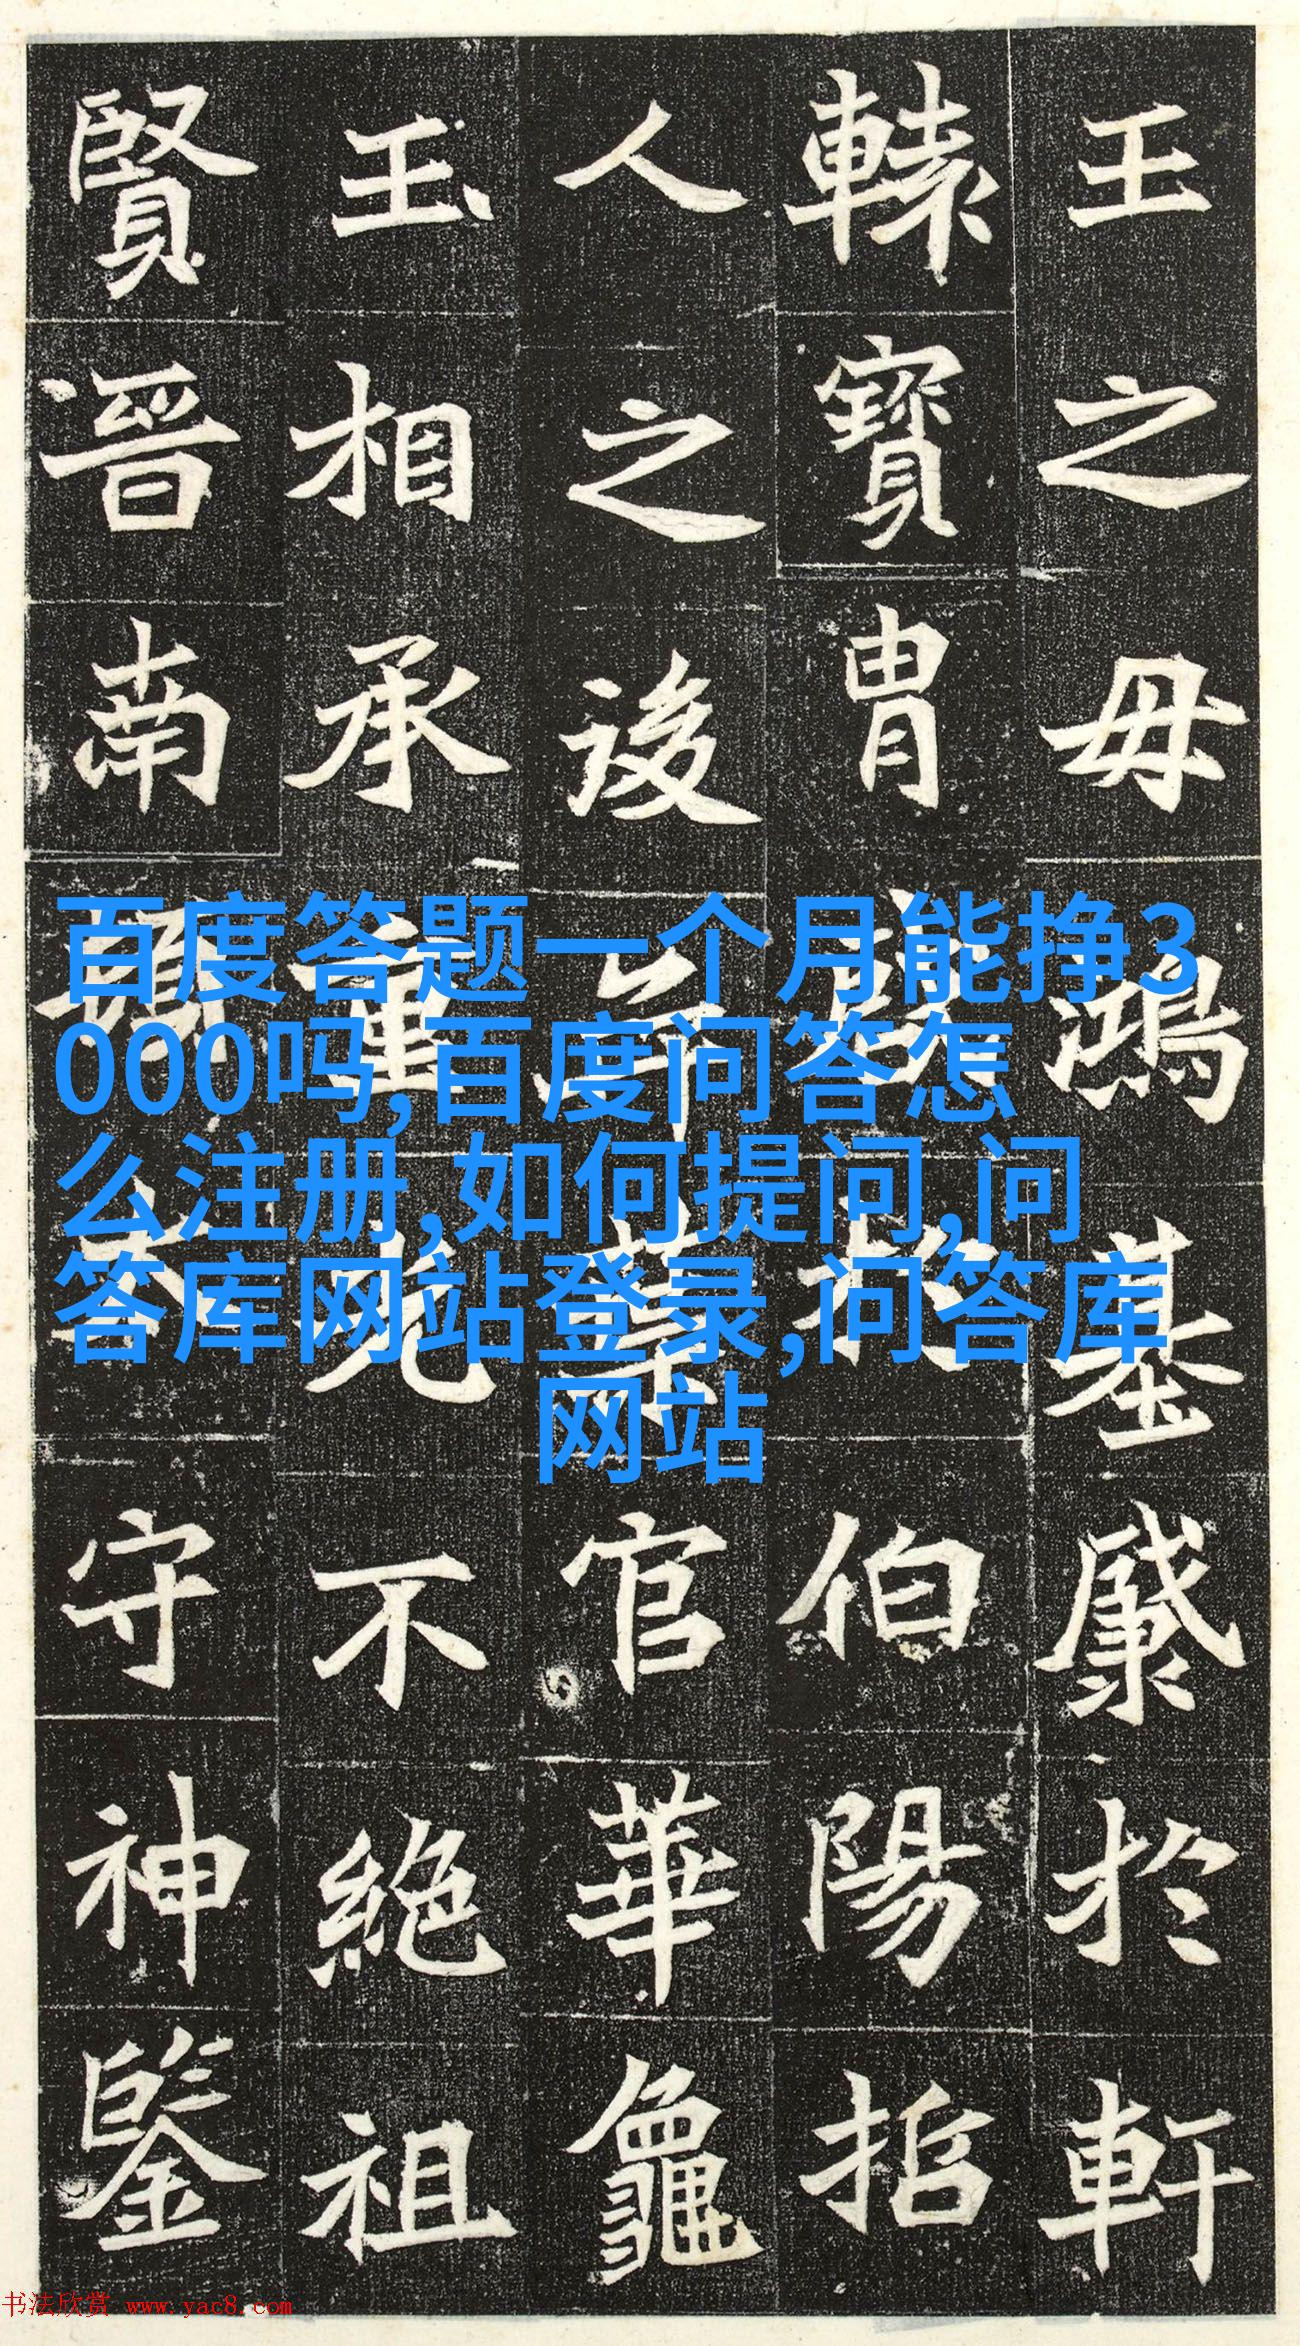 王之毋鴻基於軒
轅寶胄於伯陽
人之後官華龜
玉相承重光不絕祖
賢晉南頓太守神鑒
百度答题一个月能挣3
000吗,百度问答怎
么注册,如何提问,问
答库网站登录,问答库
网站
书法欣赏 www.yac8.com